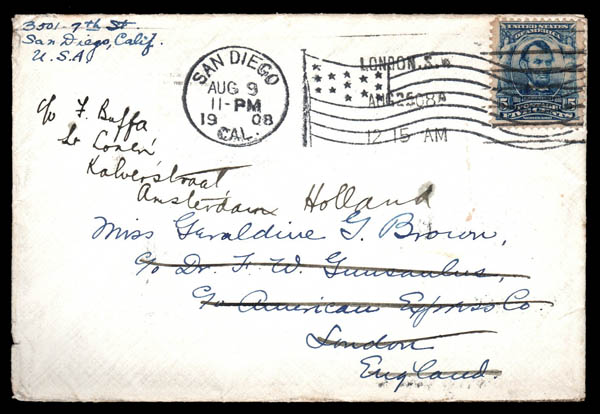 3501-7th St.
San Diego, Calif.
U.S.A.
SAN DIEGO
AUG 9
11-PM
1908
CAL.
LONDON. S.W
AUG 25 08 A
12 15 AM
UNITED STATES
OF AMERICA
5 5
c/o F. Buffa
Kalverstraat
Amsterdam Holland
Miss Geraldine G. Brown,
c/o Dr. F. W. Gunsaulus,
c/o American Express Co.
London
England.